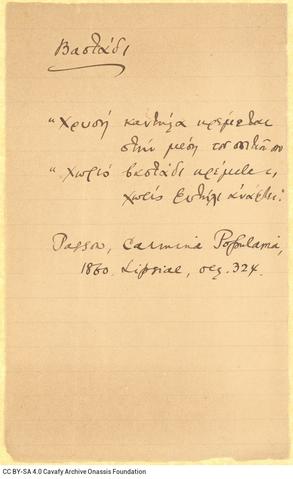 Βαστάδι
"Χρυσή καντήλα κρέμεται
στην μέση του σπιτιού σου
"Χωρίς βαστάδι κρέμεται,
χωρίς φυτήλι ανάφτει."
Passow, Carmina Popularia,
1860. Lipsiae, σελ. 324.
CC BY-SA 4.0 Cavafy Archive Onassis Foundation